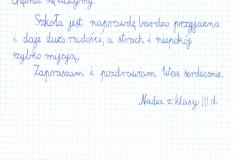 Szkoła jest naprawdę bardzo przyjazna
i daje dużo radości, a strach i niepokój
szybko mijają.
Zapraszam i pozdrawiam Was serdecznie.
Nadia z klasy III d